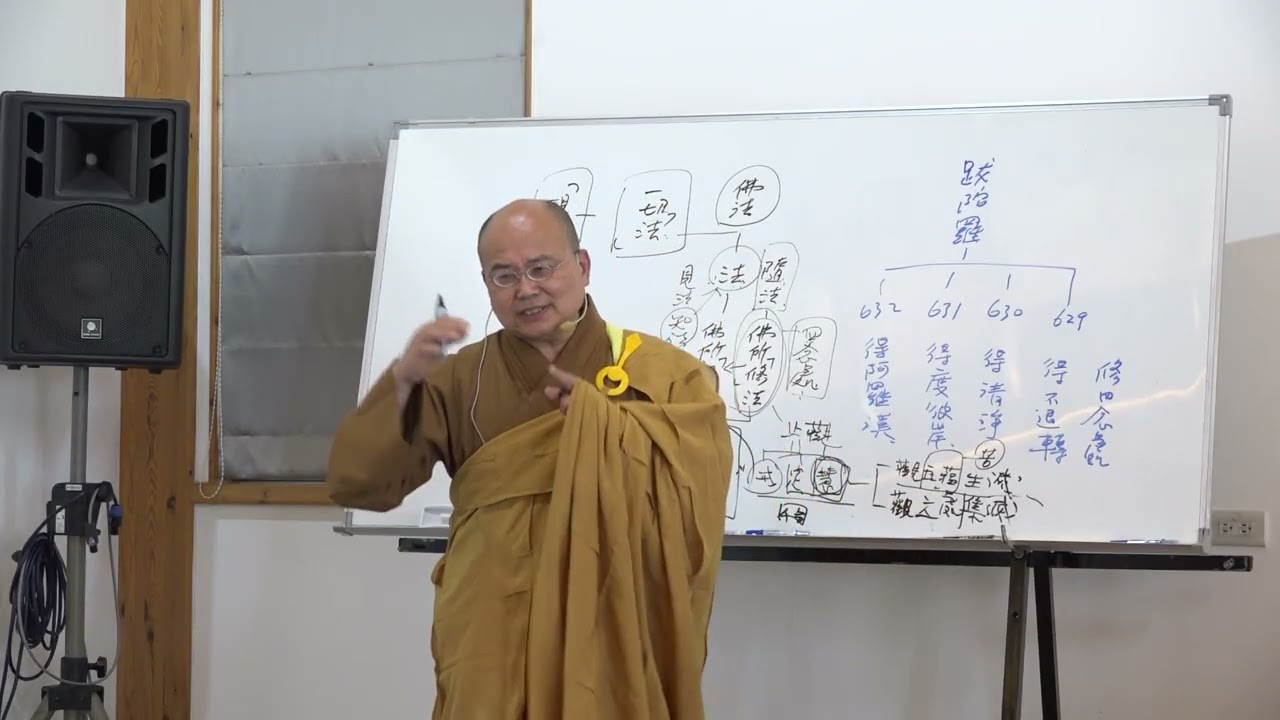 跋陀羅
629
630
631
632
修四念處
得不退轉
得清淨
得度彼岸
得阿羅漢
佛法
一切法
法
隨法
見法
四念處
佛所修法
佛所
止觀
戒
定
慧
苦
觀五蘊生滅
觀六處集滅